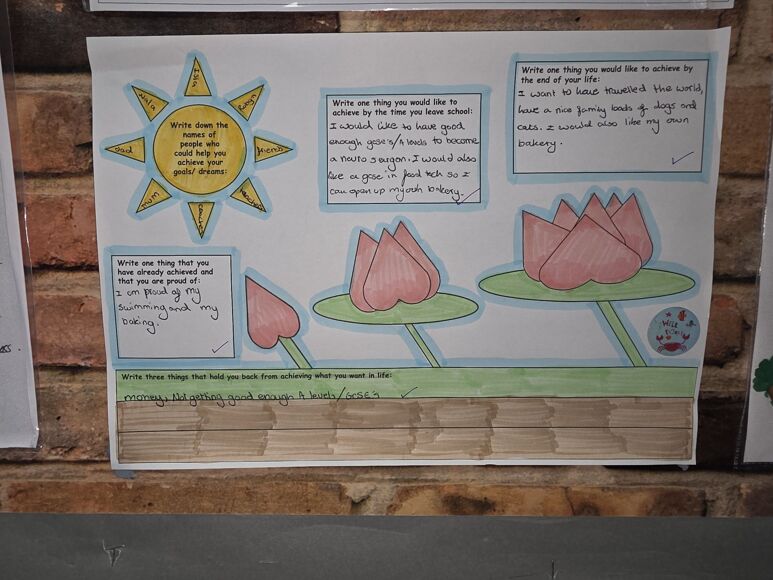 Write down the
names of
people who
could help you
achieve your
goals/ dreams:
Robyn
friends
teachers
coaches
mum
dad
Write one thing you would like to
achieve by the time you leave school:
I would like to have good
enough gcse's/A levels to become
a neuro sergon. I would also
like a gcse in food tech so I
can open up my own bakery.
Write one thing you would like to achieve by
the end of your life:
I want to have travelled the world,
have a nice family loads of dogs and
cats. I would also like my own
bakery.
Write one thing that you
have already achieved and
that you are proud of:
I am proud of my
swimming and my
baking.
WELL
DONE!
Write three things that hold you back from achieving what you want in life:
money, Not getting good enough A levels/GCSE's